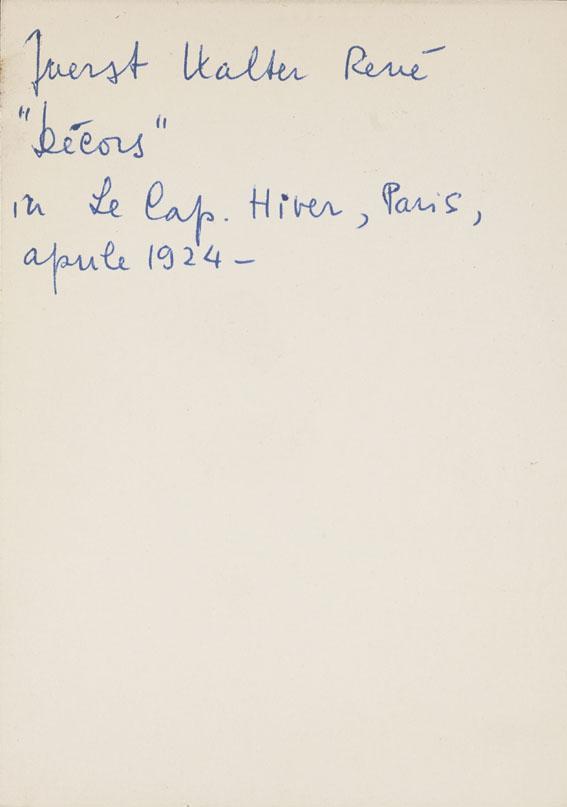 Fuerst Walter René
"Décors"
in Le Cap. Hiver, Paris,
aprile 1924 –